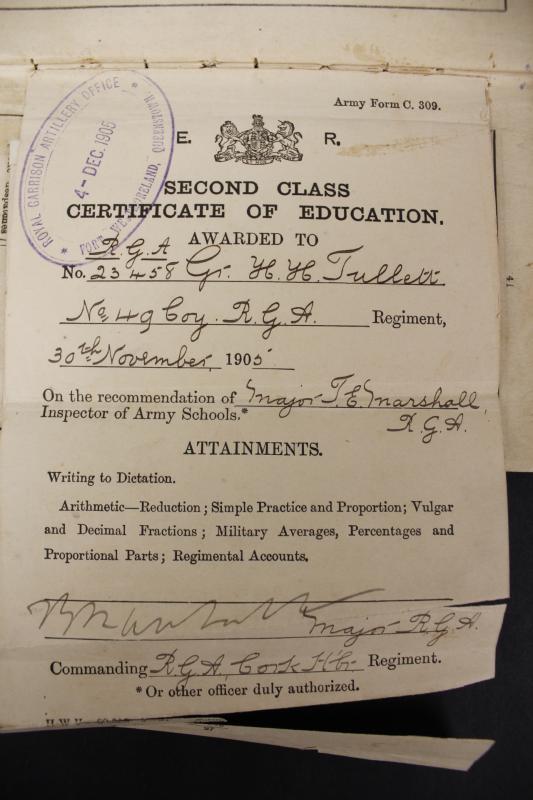 Army Form C. 309.
ROYAL GARRISON ARTILLERY OFFICE
4-DEC.1905
FORT WESTMORELAND, QUEENSTOWN
E. R.
SECOND CLASS
CERTIFICATE OF EDUCATION.
AWARDED TO
R.G.A
No. 23458 Gr. H. H. Tullett
No 49 Coy. R.G.A. Regiment,
30th November, 1905
On the recommendation of Major T. E. Marshall,
Inspector of Army Schools.* R.G.A.
ATTAINMENTS.
Writing to Dictation.
Arithmetic—Reduction; Simple Practice and Proportion; Vulgar
and Decimal Fractions; Military Averages, Percentages and
Proportional Parts; Regimental Accounts.
Major R.G.A.
Commanding R.G.A, Cork Hbr Regiment.
*Or other officer duly authorized.